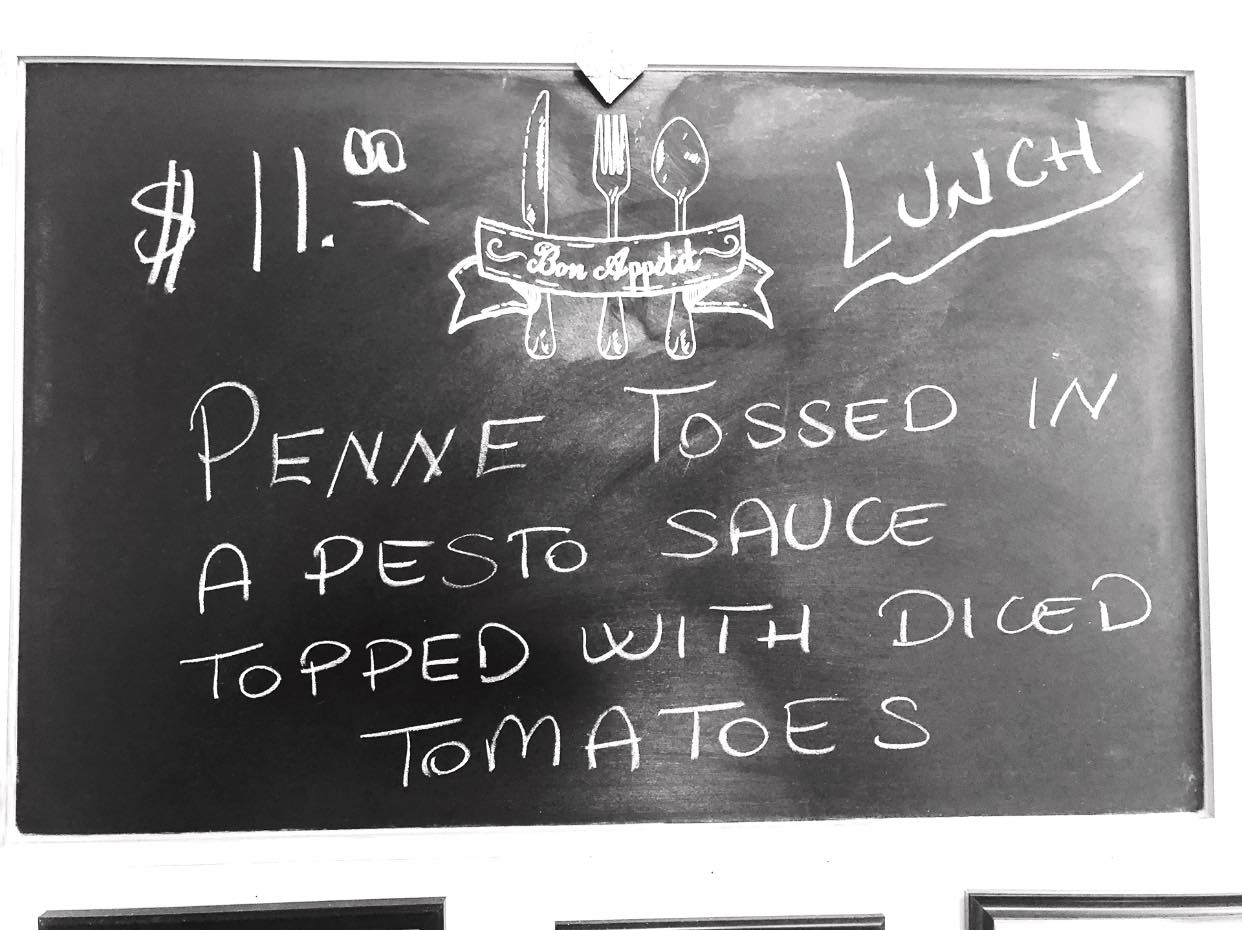 $11.00
Bon Appetit
LUNCH
PENNE TOSSED IN
A PESTO SAUCE
TOPPED WITH DICED
TOMATOES